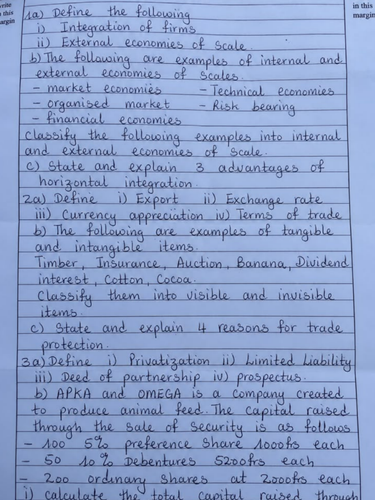 write
n this
margin
in this
margin
1a) Define the following
i) Integration of firms
ii) External economies of scale.
b) The following are examples of internal and
external economies of scales.
- market economies - Technical economies
- organised market - Risk bearing
- financial economies
Classify the following examples into internal
and external economies of scale.
c) State and explain 3 advantages of
horizontal integration.
2a) Define i) Export ii) Exchange rate
iii) Currency appreciation iv) Terms of trade
b) The following are examples of tangible
and intangible items.
Timber, Insurance, Auction, Banana, Dividend
interest, Cotton, Cocoa.
Classify them into visible and invisible
items.
c) State and explain 4 reasons for trade
protection.
3a) Define i) Privatization ii) Limited Liability
iii) Deed of partnership iv) prospectus.
b) APKA and OMEGA is a company created
to produce animal feed. The capital raised
through the sale of security is as follows
- 100 5% preference share 1000frs each
- 50 10% Debentures 5200frs each
- 200 ordinary shares at 2000frs each
i) calculate the total capital raised through